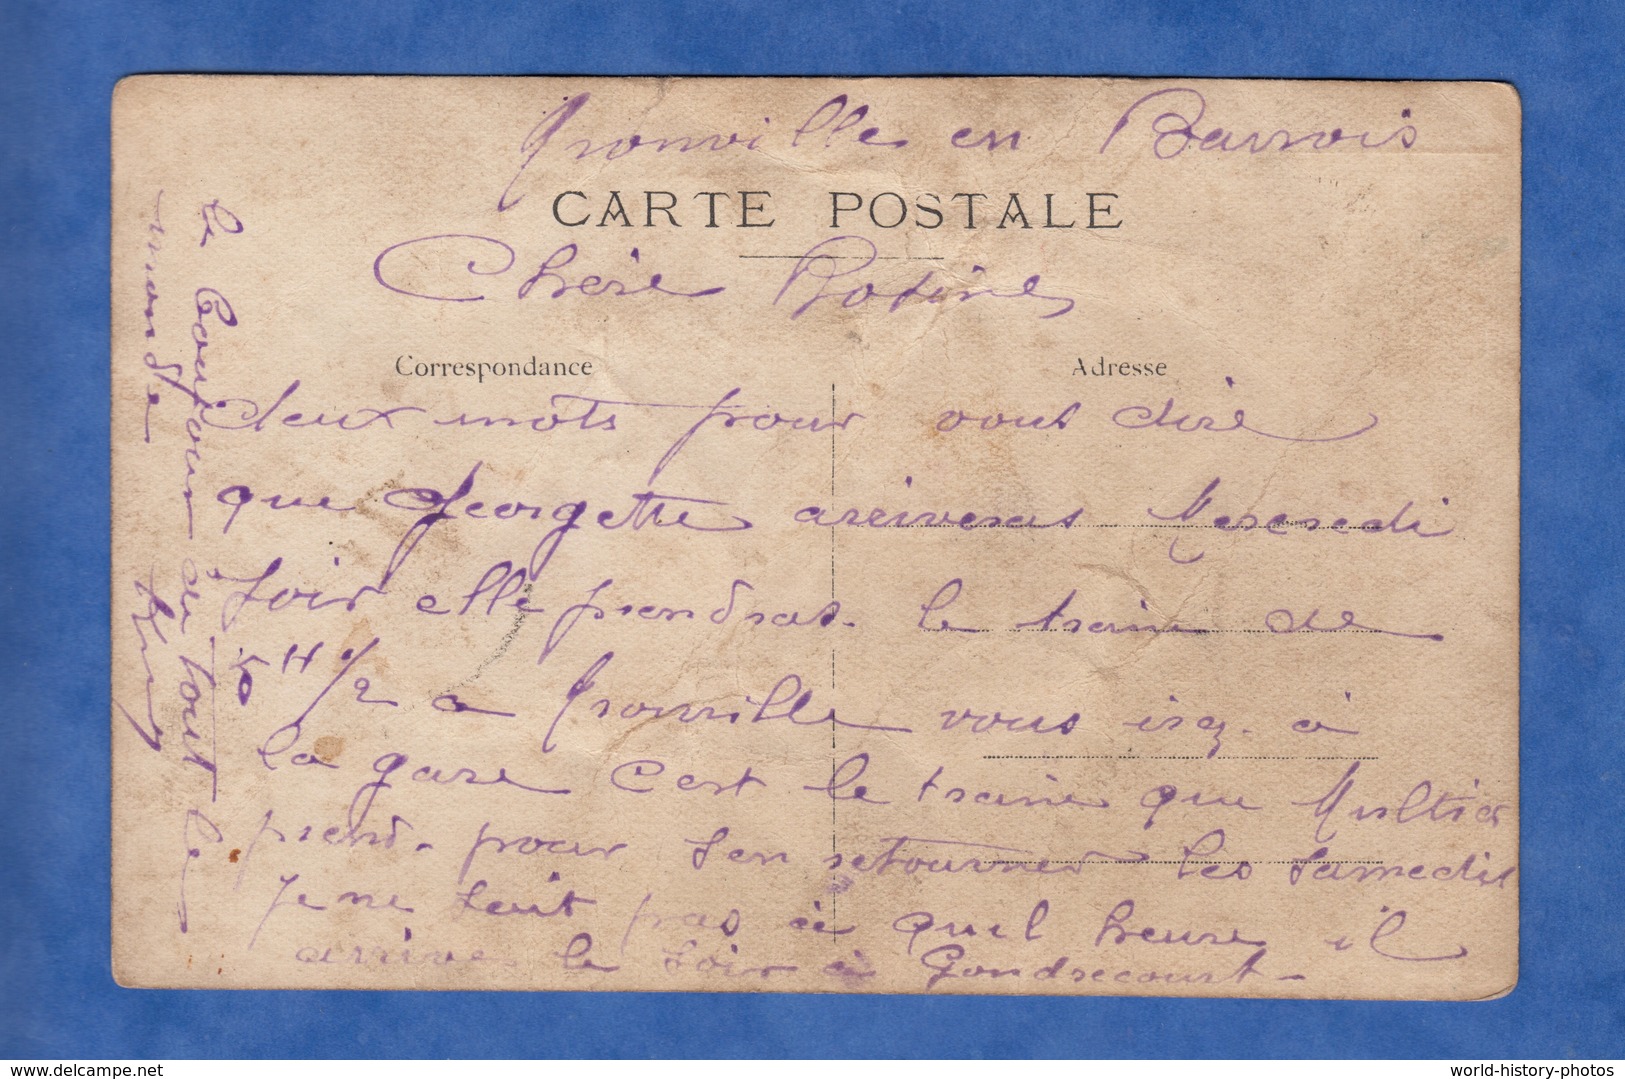 Tronville en Barrois
CARTE POSTALE
Chère Rosine
Correspondance
Adresse
deux mots pour vous dire
que Georgette arriveras Mercredi
soir elle prendras le train de
5 H 1/2 a Tronville vous irez à
la gare C'est le train que
prend pour s'en retourner les samedis
Je ne sait pas à quel heure il
arrive le soir à Gondrecourt -
le Bonjour à tout le
monde
www.delcampe.net
world-history-photos